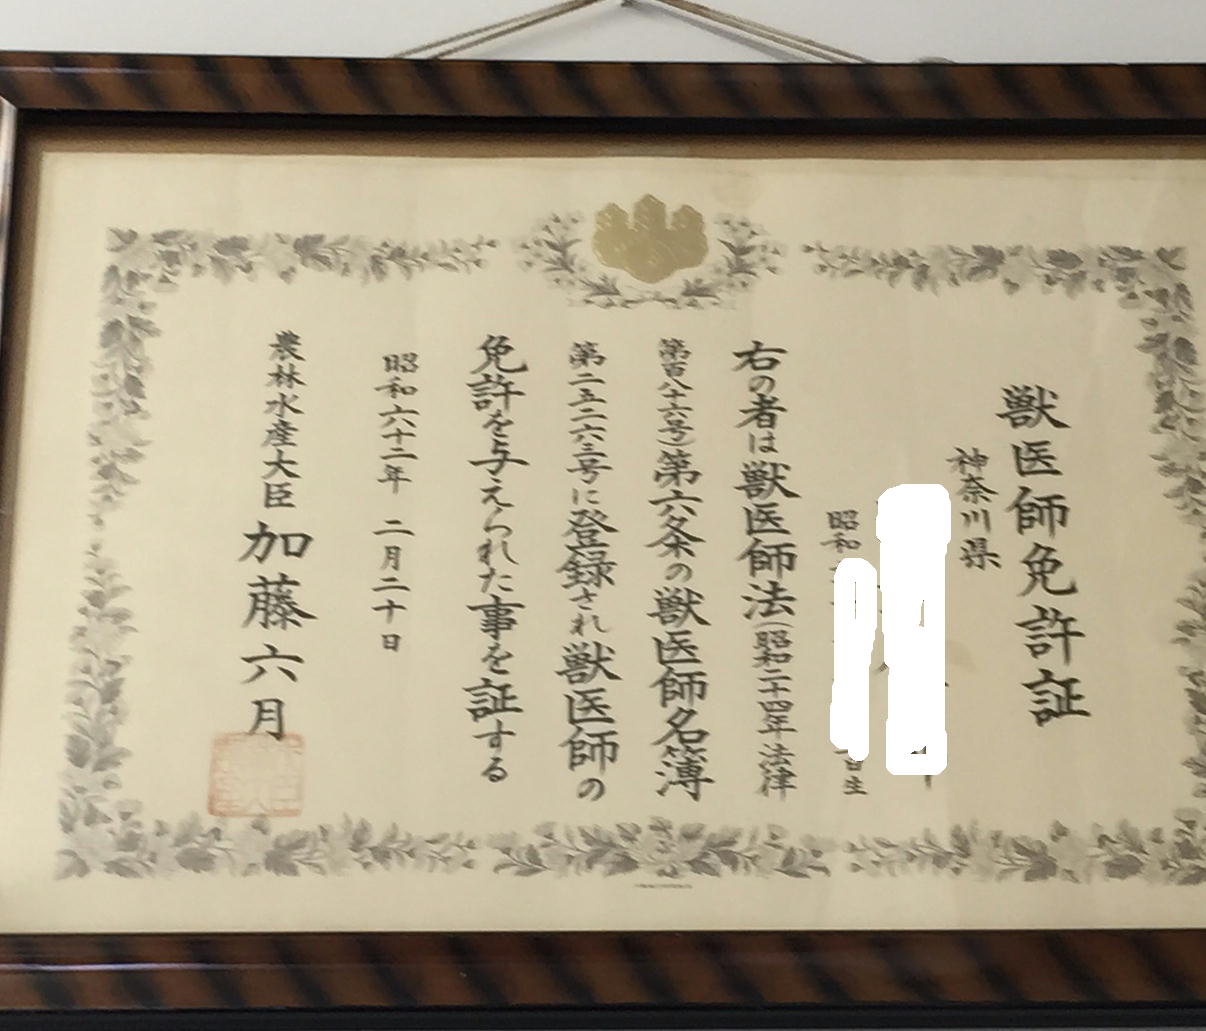 獣医師免許証
神奈川県
昭和
生
右の者は獣医師法(昭和二十四年法律
第百八十六号)第六条の獣医師名簿
第二五二六三号に登録され獣医師の
免許を与えられた事を証する
昭和六十二年 二月二十日
農林水産大臣 加藤六月